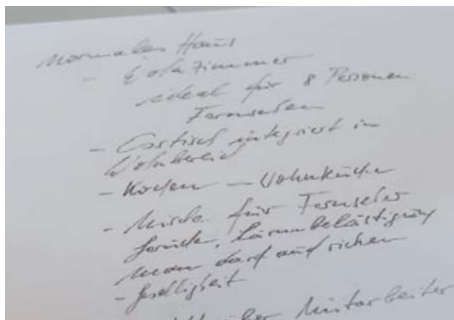 normales Haus
- Wohnzimmer
ideal für 8 Personen
Fernsehen
- integriert in
Wohnbereich
- Kochen - Wohnküche
- für Fernseher
Gerüche, Lärmbelästigung
man darf auf
- Geselligkeit
Mitarbeiter